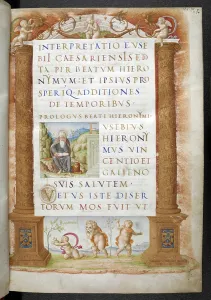 INTERPRETATIO EVSE
BII CAESARIENSIS ED
TA PER BEATVM HIERO
NYMVM: ET IPSIVS PRO
SPERIQ ADDITIONES
DE TEMPORIBVS
PROLOGVS BEATI HIERONIMI
VSEBIVS
HIERONI
MVS VIN
CENTIO ET
GALIENO
SVIS SALVTEM
VETVS ISTE DISER
TORVM MOS FVIT VT